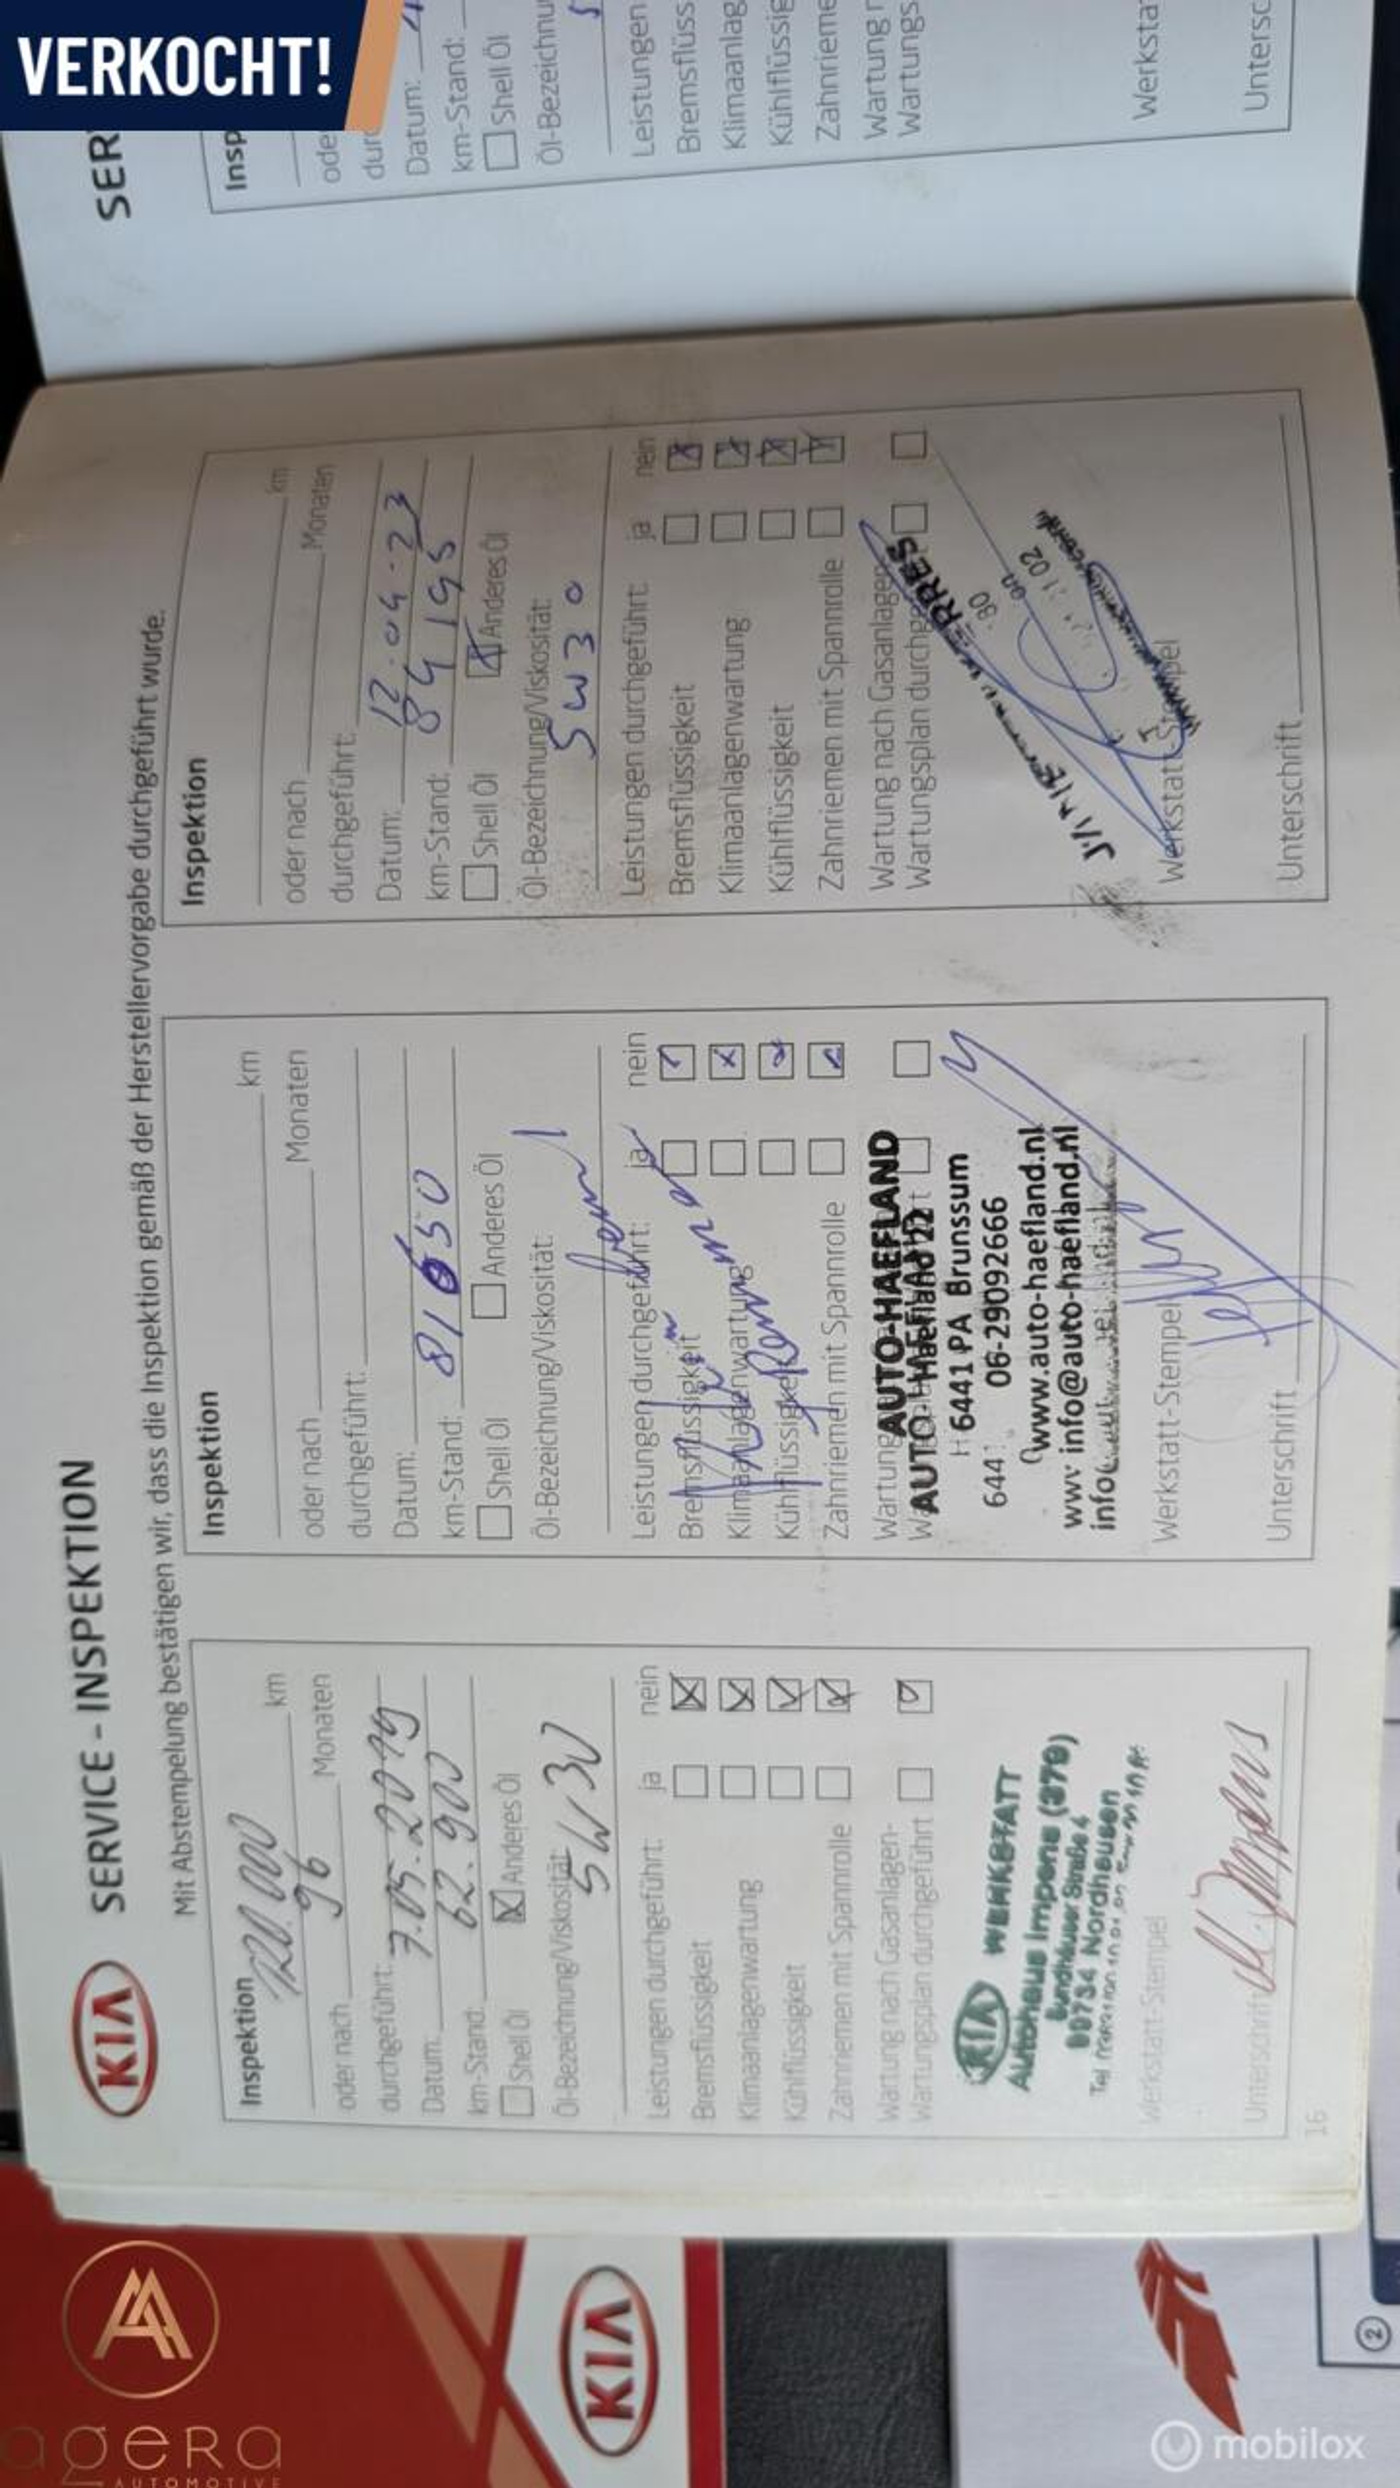 VERKOCHT!
KIA
SERVICE - INSPEKTION
Mit Abstempelung bestätigen wir, dass die Inspektion gemäß der Herstellervorgabe durchgeführt wurde.
Inspektion
120.000 km
oder nach 96 Monaten
durchgeführt:
Datum: 7.05.2019
km-Stand: 62.900
Shell Öl Anderes Öl
Öl-Bezeichnung/Viskosität:
5W30
Leistungen durchgeführt: ja nein
Bremsflüssigkeit
Klimaanlagenwartung
Kühlflüssigkeit
Zahnriemen mit Spannrolle
Wartung nach Gasanlagen-
Wartungsplan durchgeführt
KIA WERKSTATT
Autohaus Impens (379)
Sundhäuser Straße 4
99734 Nordhausen
Werkstatt-Stempel
Unterschrift
16
Inspektion
km
oder nach Monaten
durchgeführt:
Datum:
km-Stand: 81650
Shell Öl Anderes Öl
Öl-Bezeichnung/Viskosität:
Leistungen durchgeführt: ja nein
Bremsflüssigkeit
Klimaanlagenwartung
Kühlflüssigkeit
Zahnriemen mit Spannrolle
Wartung
AUTO-HAEFLAND
AUTO-HAEFLAND
Haefland 22
6441 PA Brunssum
644
06-29092666
www.auto-haefland.nl
www info@auto-haefland.nl
info
Werkstatt-Stempel
Unterschrift
Inspektion
km
oder nach Monaten
durchgeführt:
Datum: 12.04-23
km-Stand: 84195
Shell Öl Anderes Öl
Öl-Bezeichnung/Viskosität:
5W30
Leistungen durchgeführt: ja nein
Bremsflüssigkeit
Klimaanlagenwartung
Kühlflüssigkeit
Zahnriemen mit Spannrolle
Wartung nach Gasanlagen-
Wartungsplan durchge
Werkstatt-Stempel
Unterschrift
SER
Insp
ode
durc
Datum:
km-Stand:
Shell Öl
Öl-Bezeichnu
Leistungen
Bremsflüss
Klimaanlag
Kühlflüssig
Zahnrieme
Wartung n
Wartungs
Werksta
Untersc
KIA
2
agera
AUTOMOTIVE
mobilox